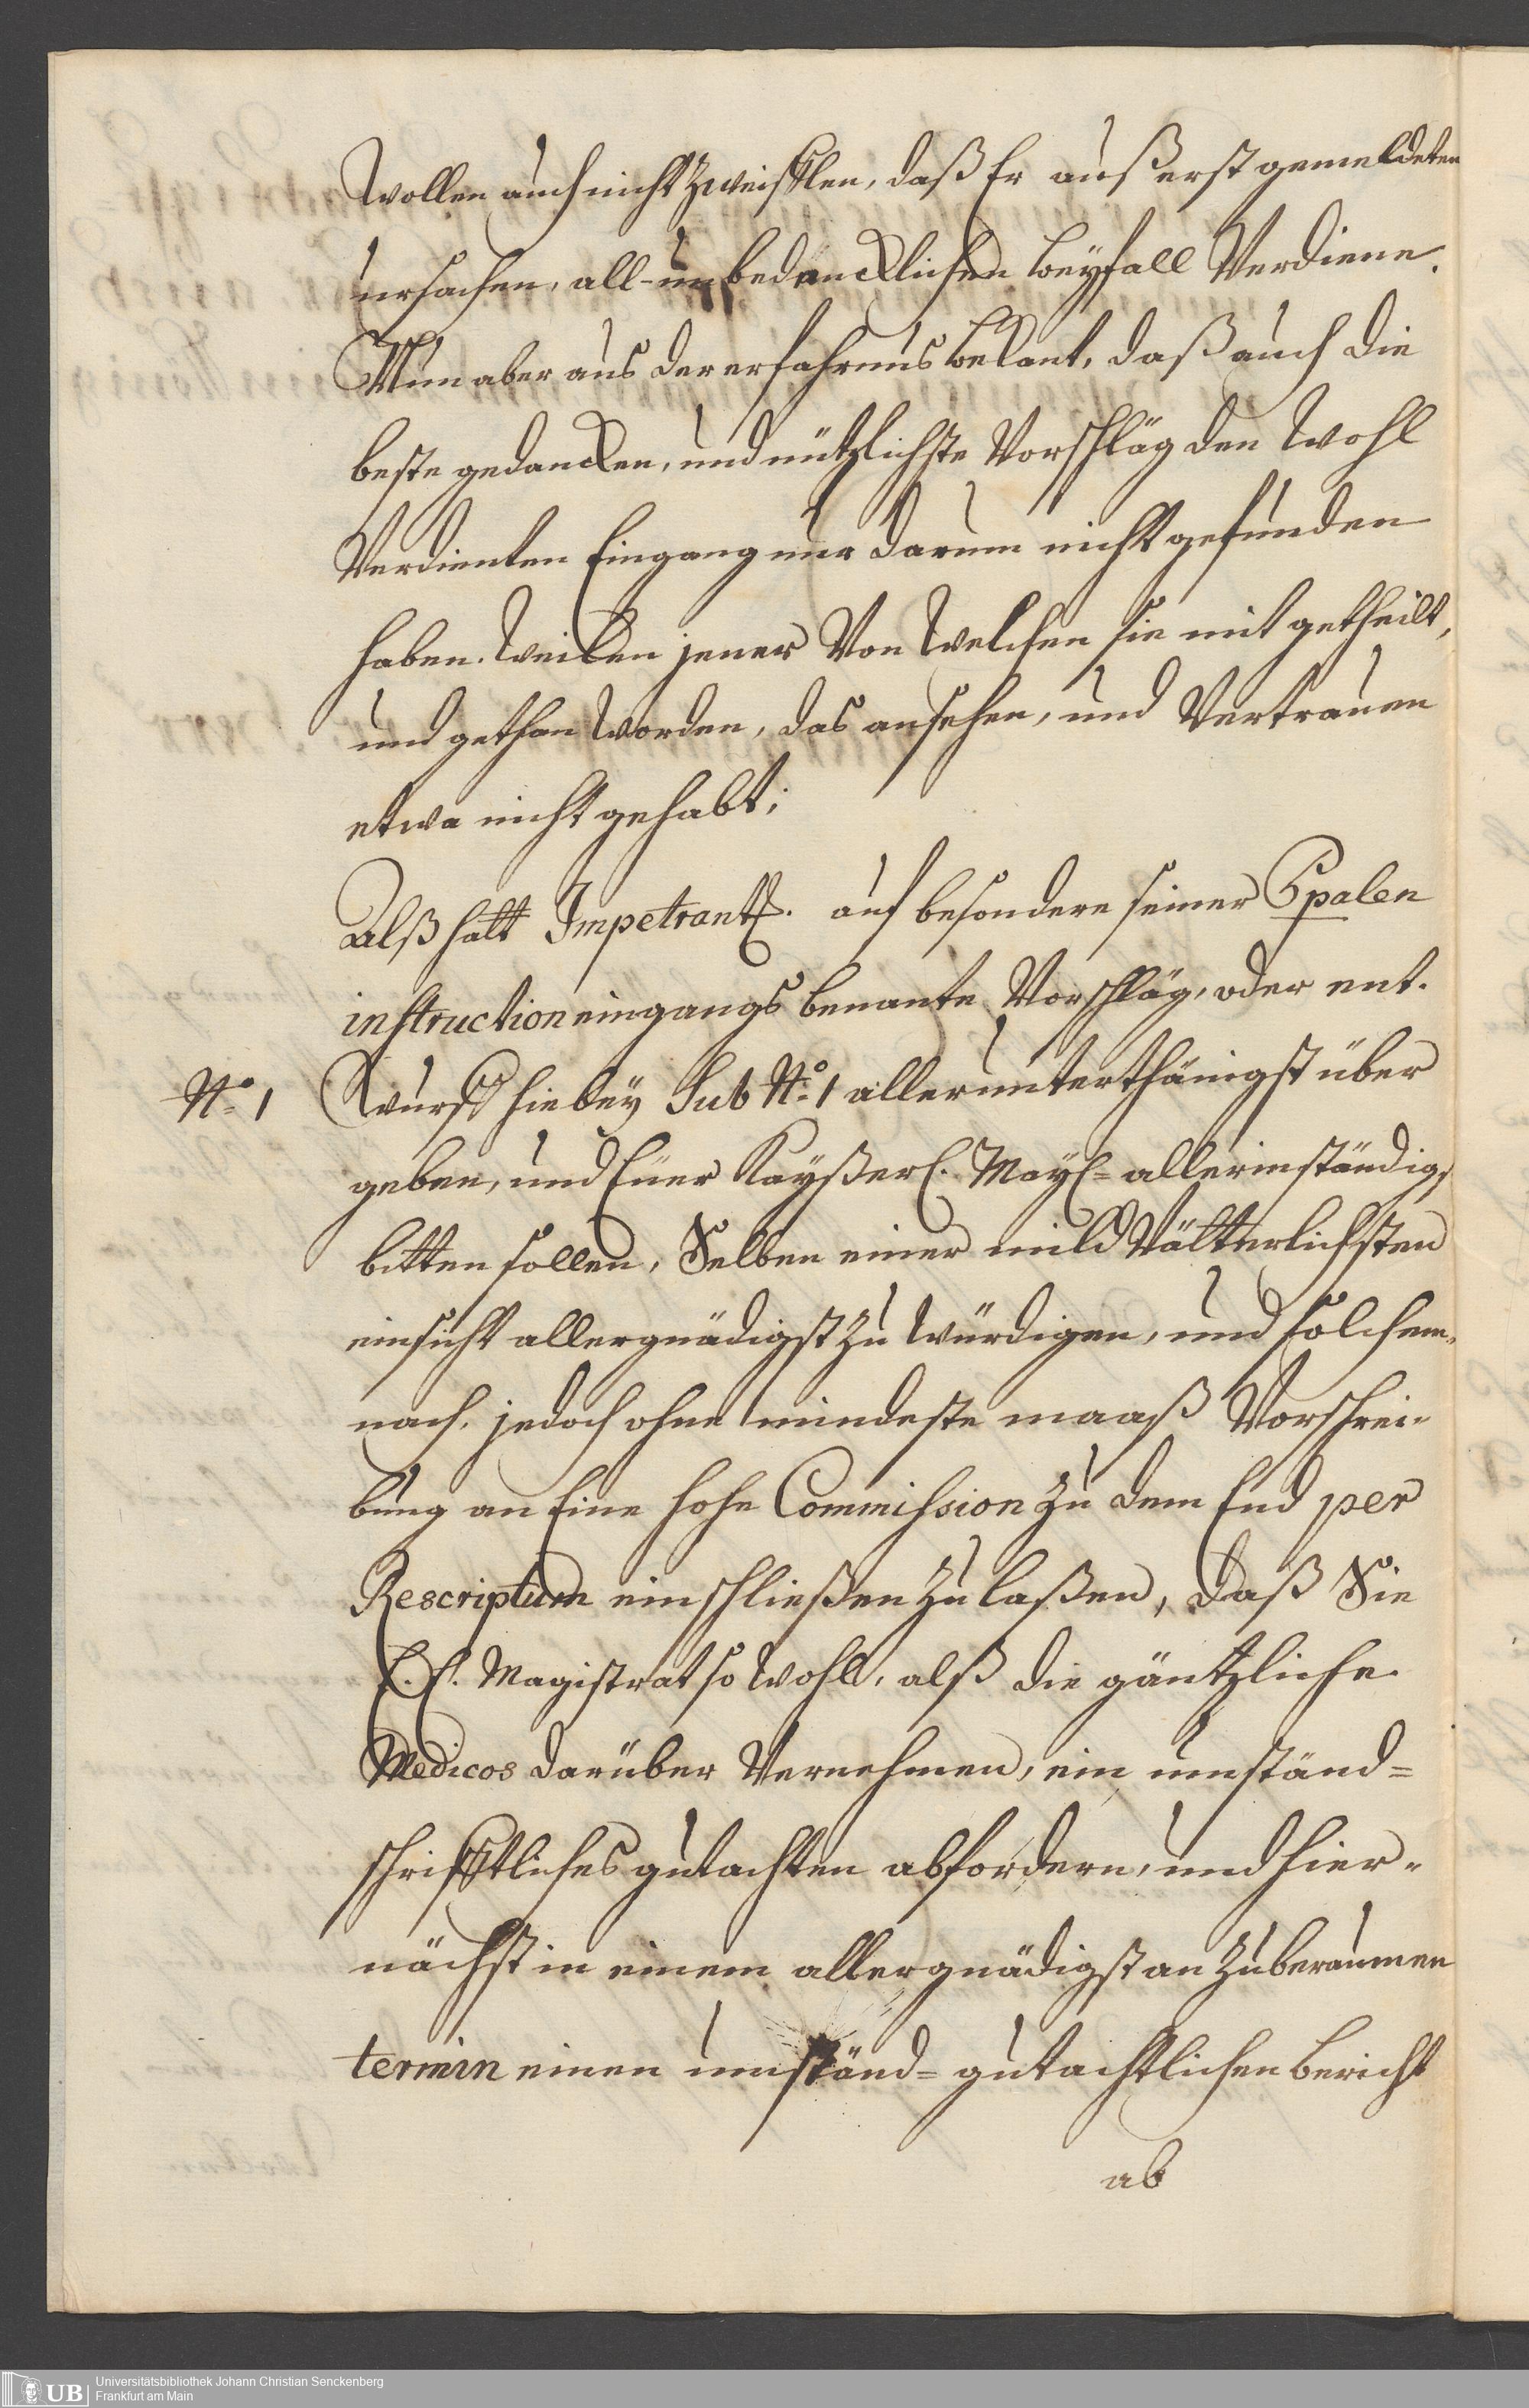 Wollen auch nicht Zweifflen, daß Er auß erst gemeldeten
ursachen, all-unbedencklichen beyfall Verdiene.
Nun aber aus der erfahrnus bekant, daß auch die
beste gedancken, und nützlichste Vorschläg den Wohl
Verdienten Eingang nur darum nicht gefunden
haben. Weilen jener Von Welchen sie mit getheilt,
und gethan Worden, das ansehen, und Vertrauen
etwa nicht gehabt;
Alß hatt Impetrant. auf besondere seiner Ppalen
instruction eingangs benante Vorschläg, oder ent-
N.º 1 Wurff hiebey Sub N.º 1 allerunterthänigst über
geben, und Euer Kayßerl. May. allerinständigst
bitten sollen, Selben einer mild Vätterlichsten
einsicht allergnädigst zu Würdigen, und solchem-
nach, jedoch ohne mindeste maaß Vorschrei-
bung an Eine hohe Commission zu dem End per
Rescriptum einschließen zu laßen, daß Sie
E. E. Magistrat so Wohl, alß die gäntzliche
Medicos darüber Vernehmen, ein umständ=
schrifftliches gutachten abfordern, und hier-
nächst in einem allergnädigst anzuberaumen
termin einen umständ= gutachtlichen bericht
ab
UB Universitätsbibliothek Johann Christian Senckenberg
Frankfurt am Main